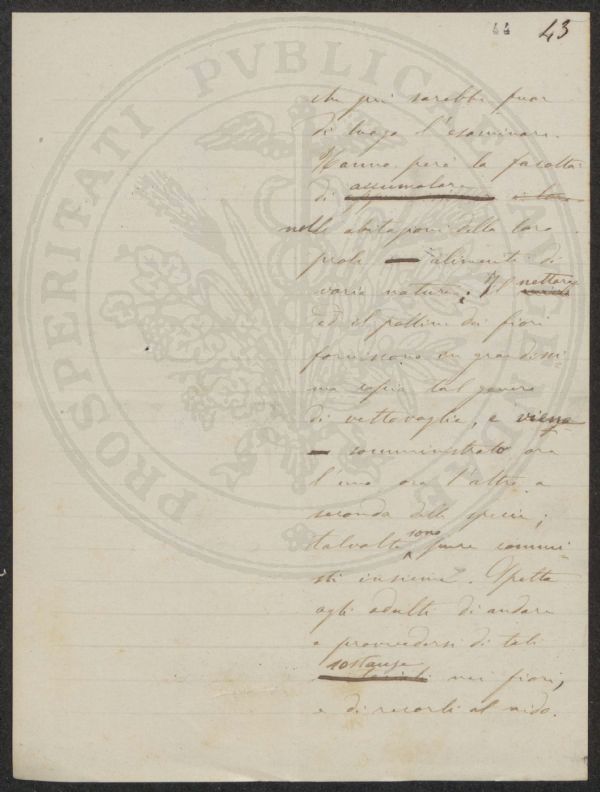 44 43
che qui sarebbe fuor
di luogo l'esaminare.
Hanno però la facoltà
di accumulare
nelle abitazioni della loro
prole alimenti di
varia natura; Il nettare
ed il polline dei fiori
forniscono in grandissi-
ma copia tal genere
di vettovaglie, e viene
somministrato ora
l'uno ora l'altro a
seconda delle specie;
talvolta sono pure commi-
sti insieme. Spetta
agli adulti di andare
a provvedersi di tali
sostanze nei fiori,
e di recarli al nido.
PROSPERITATI PVBLICAE AVGENDAE